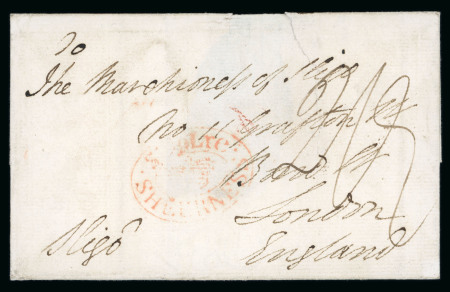 To
The Marchioness of Sligo
No 11 Grafton St
Bond St
London
England
Sligo
SHEERNESS